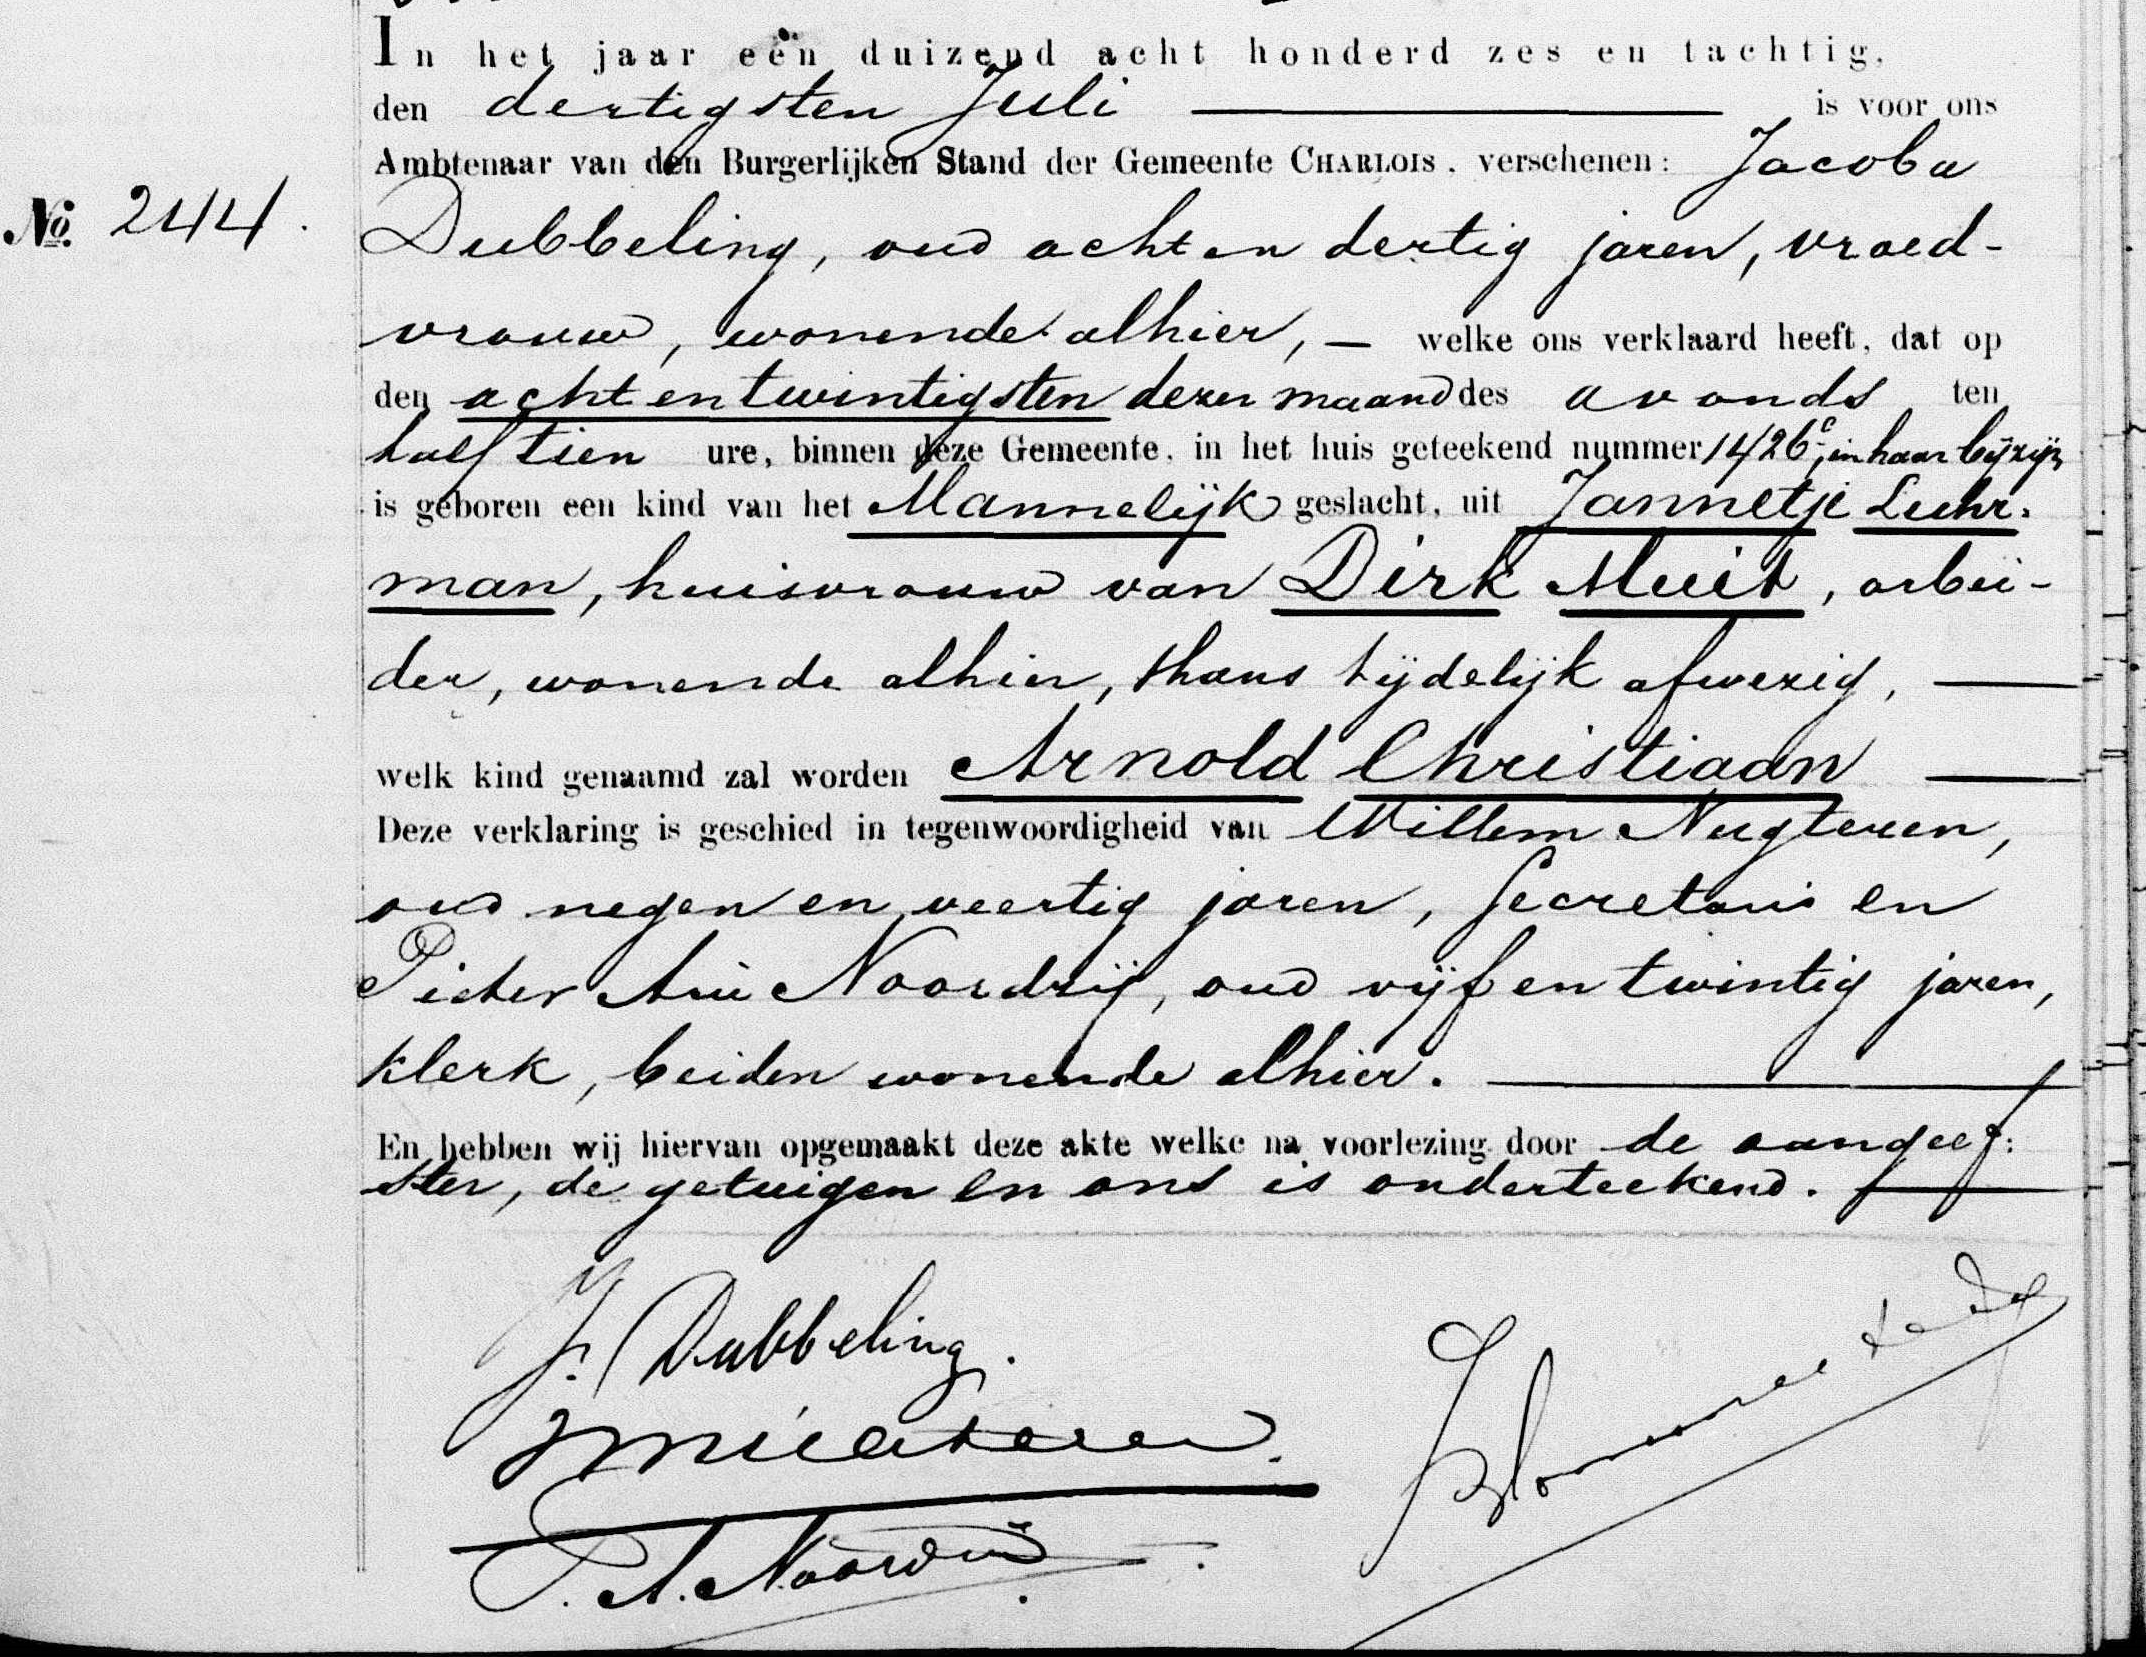 In het jaar eën duizend acht honderd zes en tachtig,
den dertigsten Juli is voor ons
Ambtenaar van den Burgerlijken Stand der Gemeente CHARLOIS, verschenen: Jacoba
No. 244.
Dubbeling, oud acht en dertig jaren, vroed-
vrouw, wonende alhier, — welke ons verklaard heeft, dat op
den acht en twintigsten dezer maand des avonds ten
half tien ure, binnen deze Gemeente, in het huis geteekend nummer 1426c, in haar bijzijn
is geboren een kind van het Mannelijk geslacht, uit Jannetje Luhr-
man, huisvrouw van Dirk Muit, arbei-
der, wonende alhier, thans tijdelijk afwezig,
welk kind genaamd zal worden Arnold Christiaan
Deze verklaring is geschied in tegenwoordigheid van Willem Nugteren,
oud negen en veertig jaren, Secretaris en
Pieter Arie Noordzij, oud vijf en twintig jaren,
klerk, beiden wonende alhier.
En hebben wij hiervan opgemaakt deze akte welke na voorlezing door de aangeef-
ster, de getuigen en ons is onderteekend.
J. Dubbeling.
P. A. Noordzij